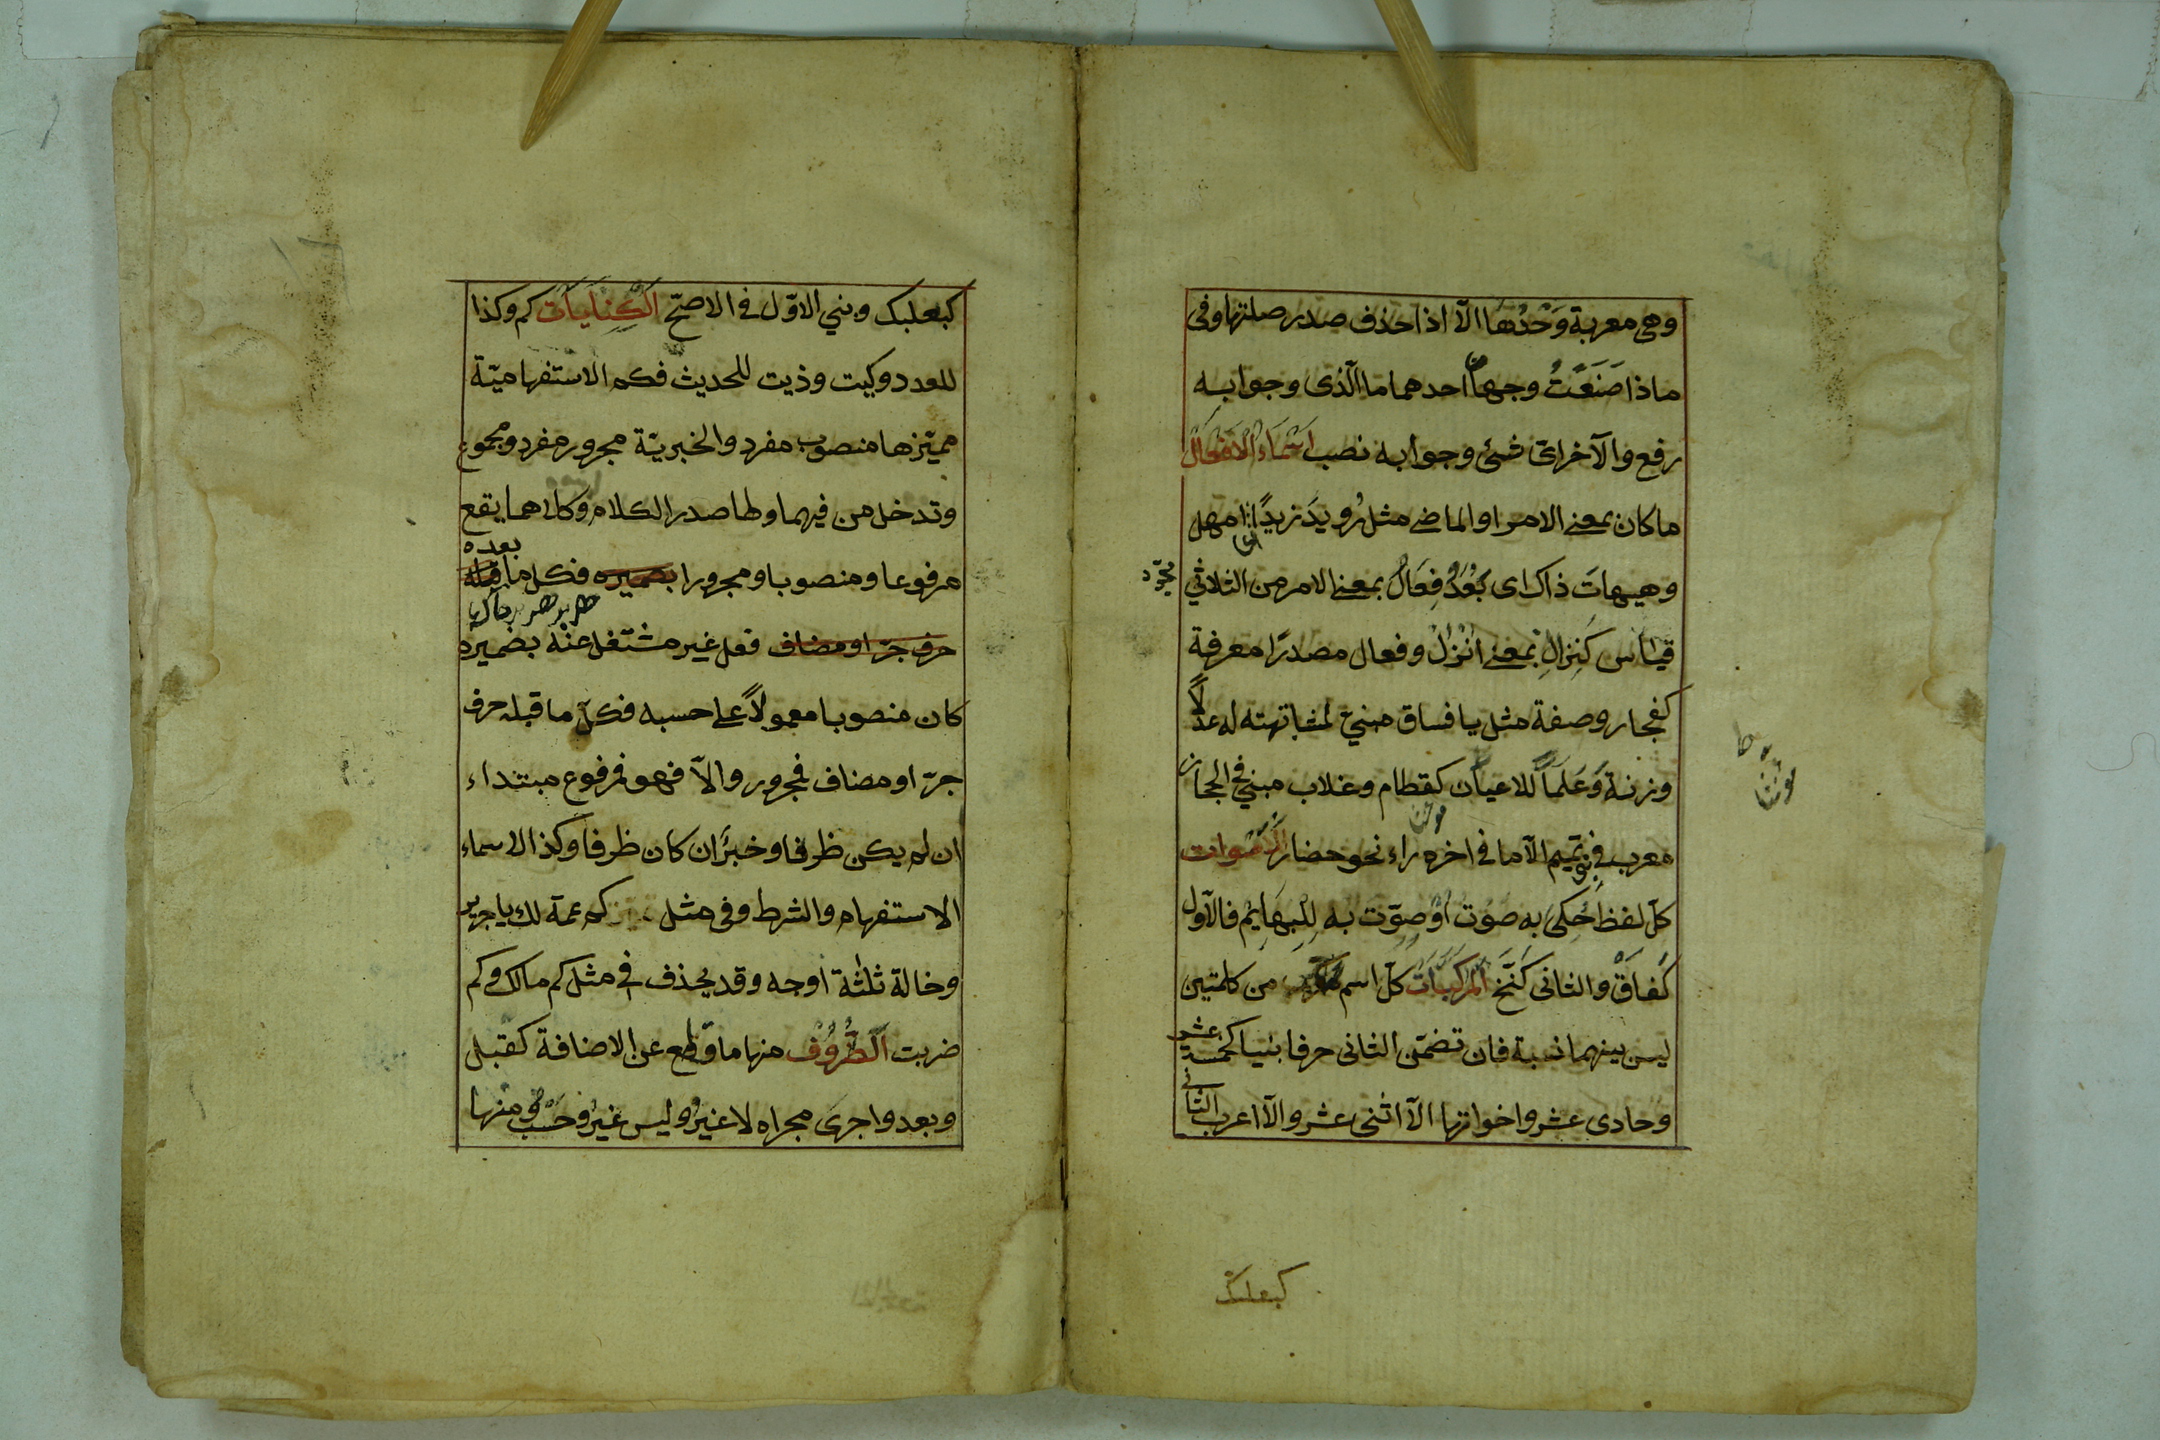 وهى معربة وَحْدَها الّا اذا حذف صدر صلتها وفى
ماذا صَنَعْتَ وجهان احدهما ما الّذى وجوابه
رفع والآخر اىّ شئ وجوابه نصب اسْمَاءُ الْاَفْعَال
ما كان بمعنى الامر او الماضى مثل رُويدَ زيدًا اى امهل
وهيهات ذاك اى بَعُدَ وفعال بمعنى الامر من الثلاثي
مجرّد
قياس كَنِزالِ بمعنى انْزِلْ وفعال مصدرًا معرفة
كفجار وصفة مثل يا فساق مبنيّ لمشابهته له عدلًا
وزنة وَعَلَماً للاعيان كقطام وغلاب مبني في الحجاز
مؤنث
معرب فى بنى تميم الّا ما فى اخره راء نحو حضار الاَصْوات
كلّ لفظ حُكىَ به صوت اوْ صوّت به لِلْبهَايم فالاوّل
كَغاقْ والثانى كَنَخّ المركّبَات كلّ اسم من كلمتين
ليس بينهما نسبة فان تضمّن الثانى حرفا بنيا كخمسة عشر
وحادى عشر واخواتها الّا اثنى عشر والّا اعرب الثانى
كبعلبك
كبعلبك وبني الاوّل فى الاصحّ الْكِنَايَات كم وكذا
للعدد وكيت وذيت للحديث فكم الاستفهاميّة
مميّزها منصوب مفرد والخبريّة مجرور مفرد ومجموع
وتدخل من فيهما ولها صدر الكلام وكلاهما يقع
مرفوعا ومنصوبا ومجرورا بضميره فكل ما قبله بعده
حرف جرّ او مضاف فعل غير مشتغل عنْه بضميره
كان منصوبا معمولاً على حسبه فكلّ ما قبله حرف
جرّ او مضاف فمجرور والّا فهو مرفوع مبتداء
ان لم يكن ظرفا وخبرٌ ان كان ظرفا وكذا الاسماء
الاستفهام والشرط وفى مثل كم عمة لك يا جرير
وخالة ثلٰثة اوجه وقد يحذف فى مثل كم مالك وكم
ضربت الظُّرُوْف منها ما قطع عن الاضافة كقبل
وبعد واجرىَ مجراه لا غيرُ وليس غيرُ وحَسْبُ ومنها